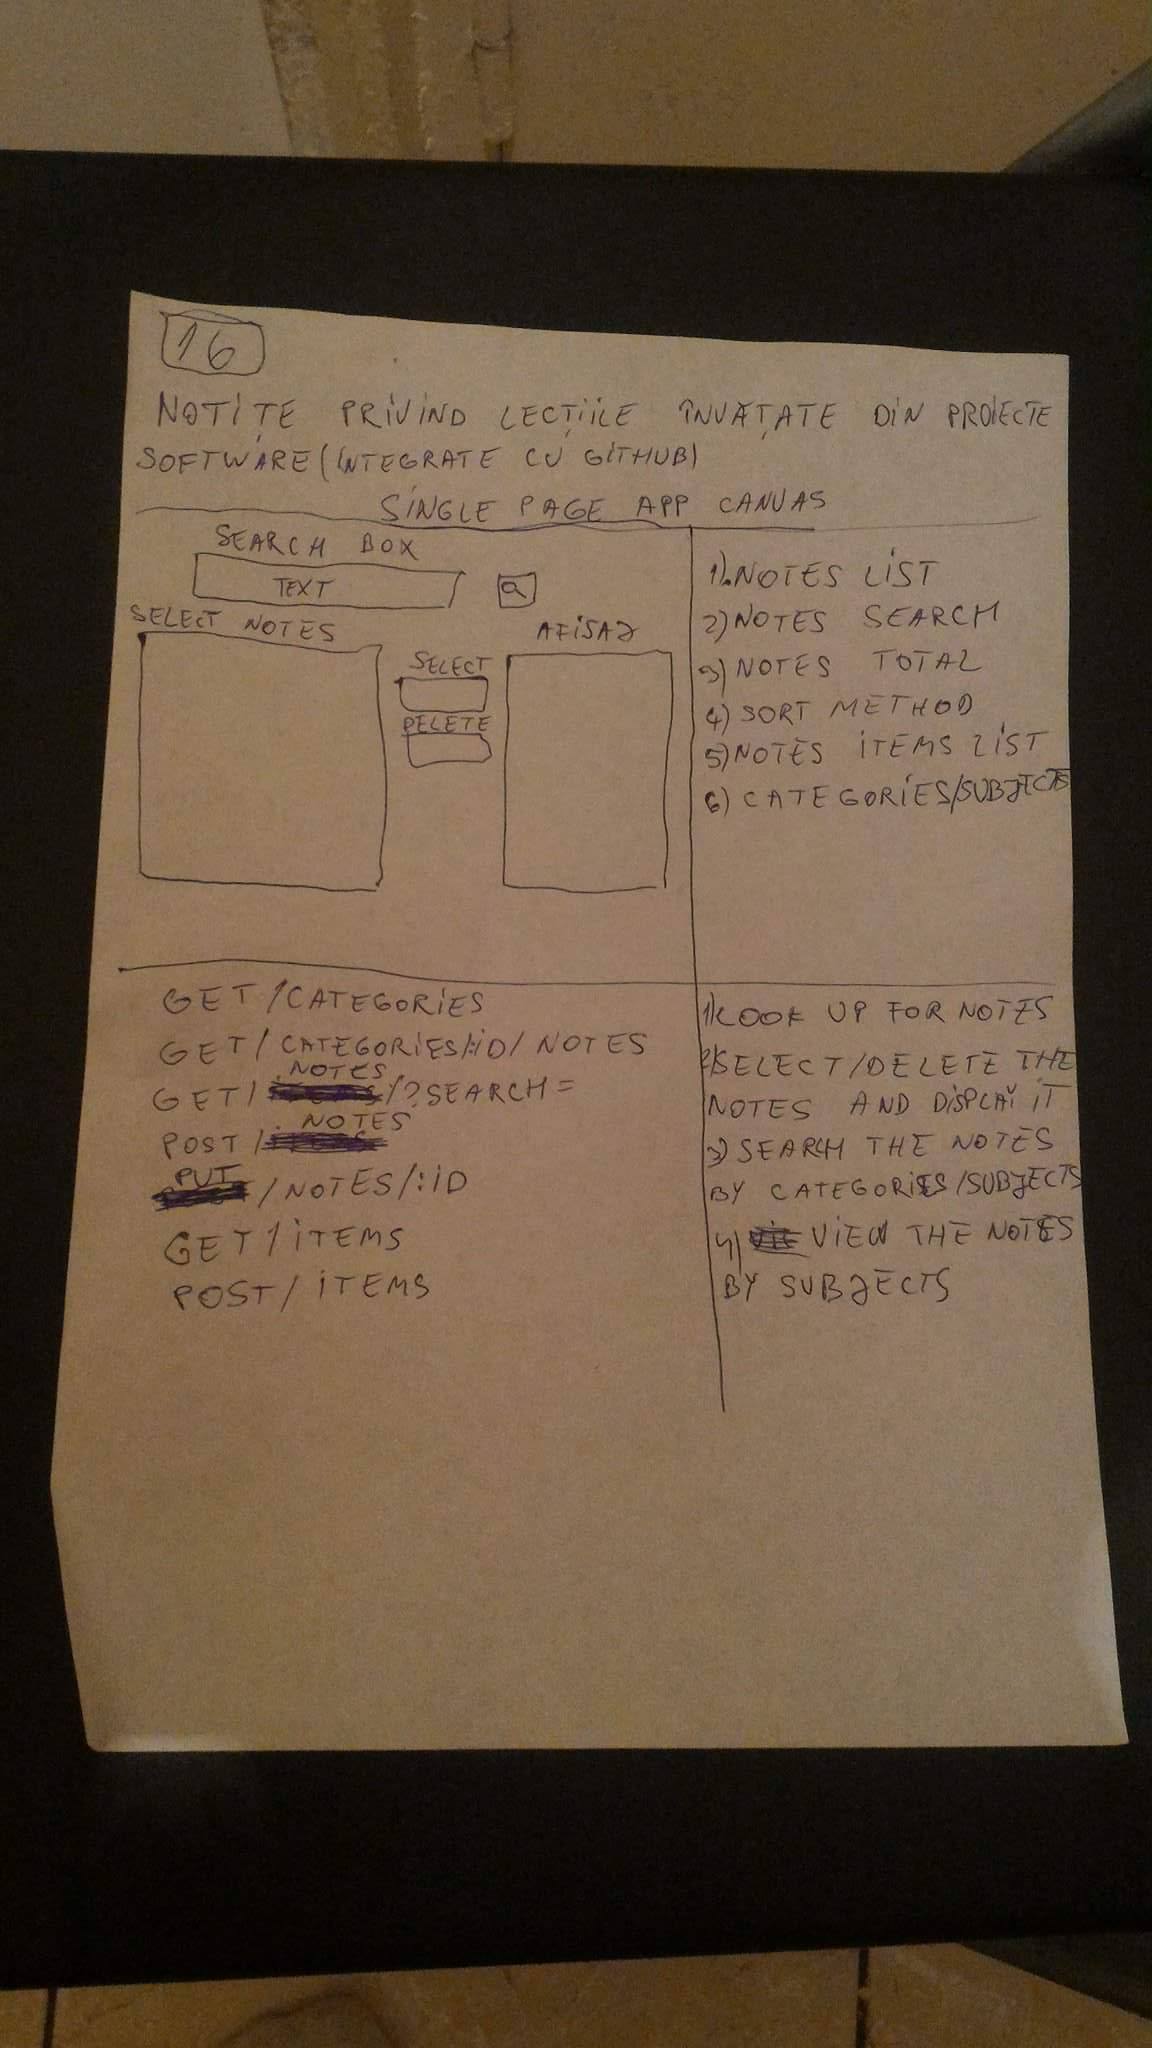 16
NOTIȚE PRIVIND LECȚIILE ÎNVĂȚATE DIN PROIECTE
SOFTWARE (INTEGRATE CU GITHUB)
SINGLE PAGE APP CANVAS
SEARCH BOX
TEXT
SELECT NOTES
AFISAJ
SELECT
DELETE
1). NOTES LIST
2) NOTES SEARCH
3) NOTES TOTAL
4) SORT METHOD
5) NOTES ITEMS LIST
6) CATEGORIES/SUBJECTS
GET /CATEGORIES
GET / CATEGORIES/:ID/ NOTES
GET / NOTES /?SEARCH=
POST / NOTES
PUT /NOTES/:ID
GET / ITEMS
POST / ITEMS
1) LOOK UP FOR NOTES
2) SELECT/DELETE THE
NOTES AND DISPLAY IT
3) SEARCH THE NOTES
BY CATEGORIES/SUBJECTS
4) VIEW THE NOTES
BY SUBJECTS